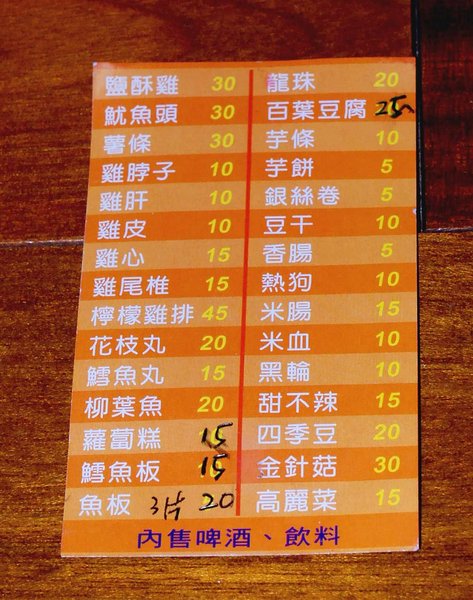 鹽酥雞 30
魷魚頭 30
薯條 30
雞脖子 10
雞肝 10
雞皮 10
雞心 15
雞尾椎 15
檸檬雞排 45
花枝丸 20
鱈魚丸 15
柳葉魚 20
蘿蔔糕 15
鱈魚板 15
魚板 3片 20
龍珠 20
百葉豆腐 25
芋條 10
芋餅 5
銀絲卷 5
豆干 10
香腸 5
熱狗 10
米腸 15
米血 10
黑輪 10
甜不辣 15
四季豆 20
金針菇 30
高麗菜 15
內售啤酒、飲料